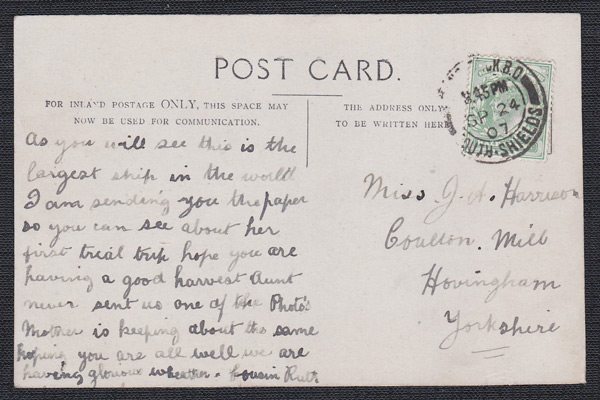 POST CARD.
FOR INLAND POSTAGE ONLY, THIS SPACE MAY
NOW BE USED FOR COMMUNICATION.
THE ADDRESS ONLY
TO BE WRITTEN HERE
K.B.O
45PM
SP 24
07
SHIELDS
As you will see this is the
largest ship in the world
I am sending you the paper
so you can see about her
first trial trip hope you are
having a good harvest Aunt
never sent us one of the Photo's
Mother is keeping about the same
hoping you are all well we are
having glorious wheather. Cousin Ruth
Miss J. A. Harrison
Coulton. Mill
Hovingham
Yorkshire